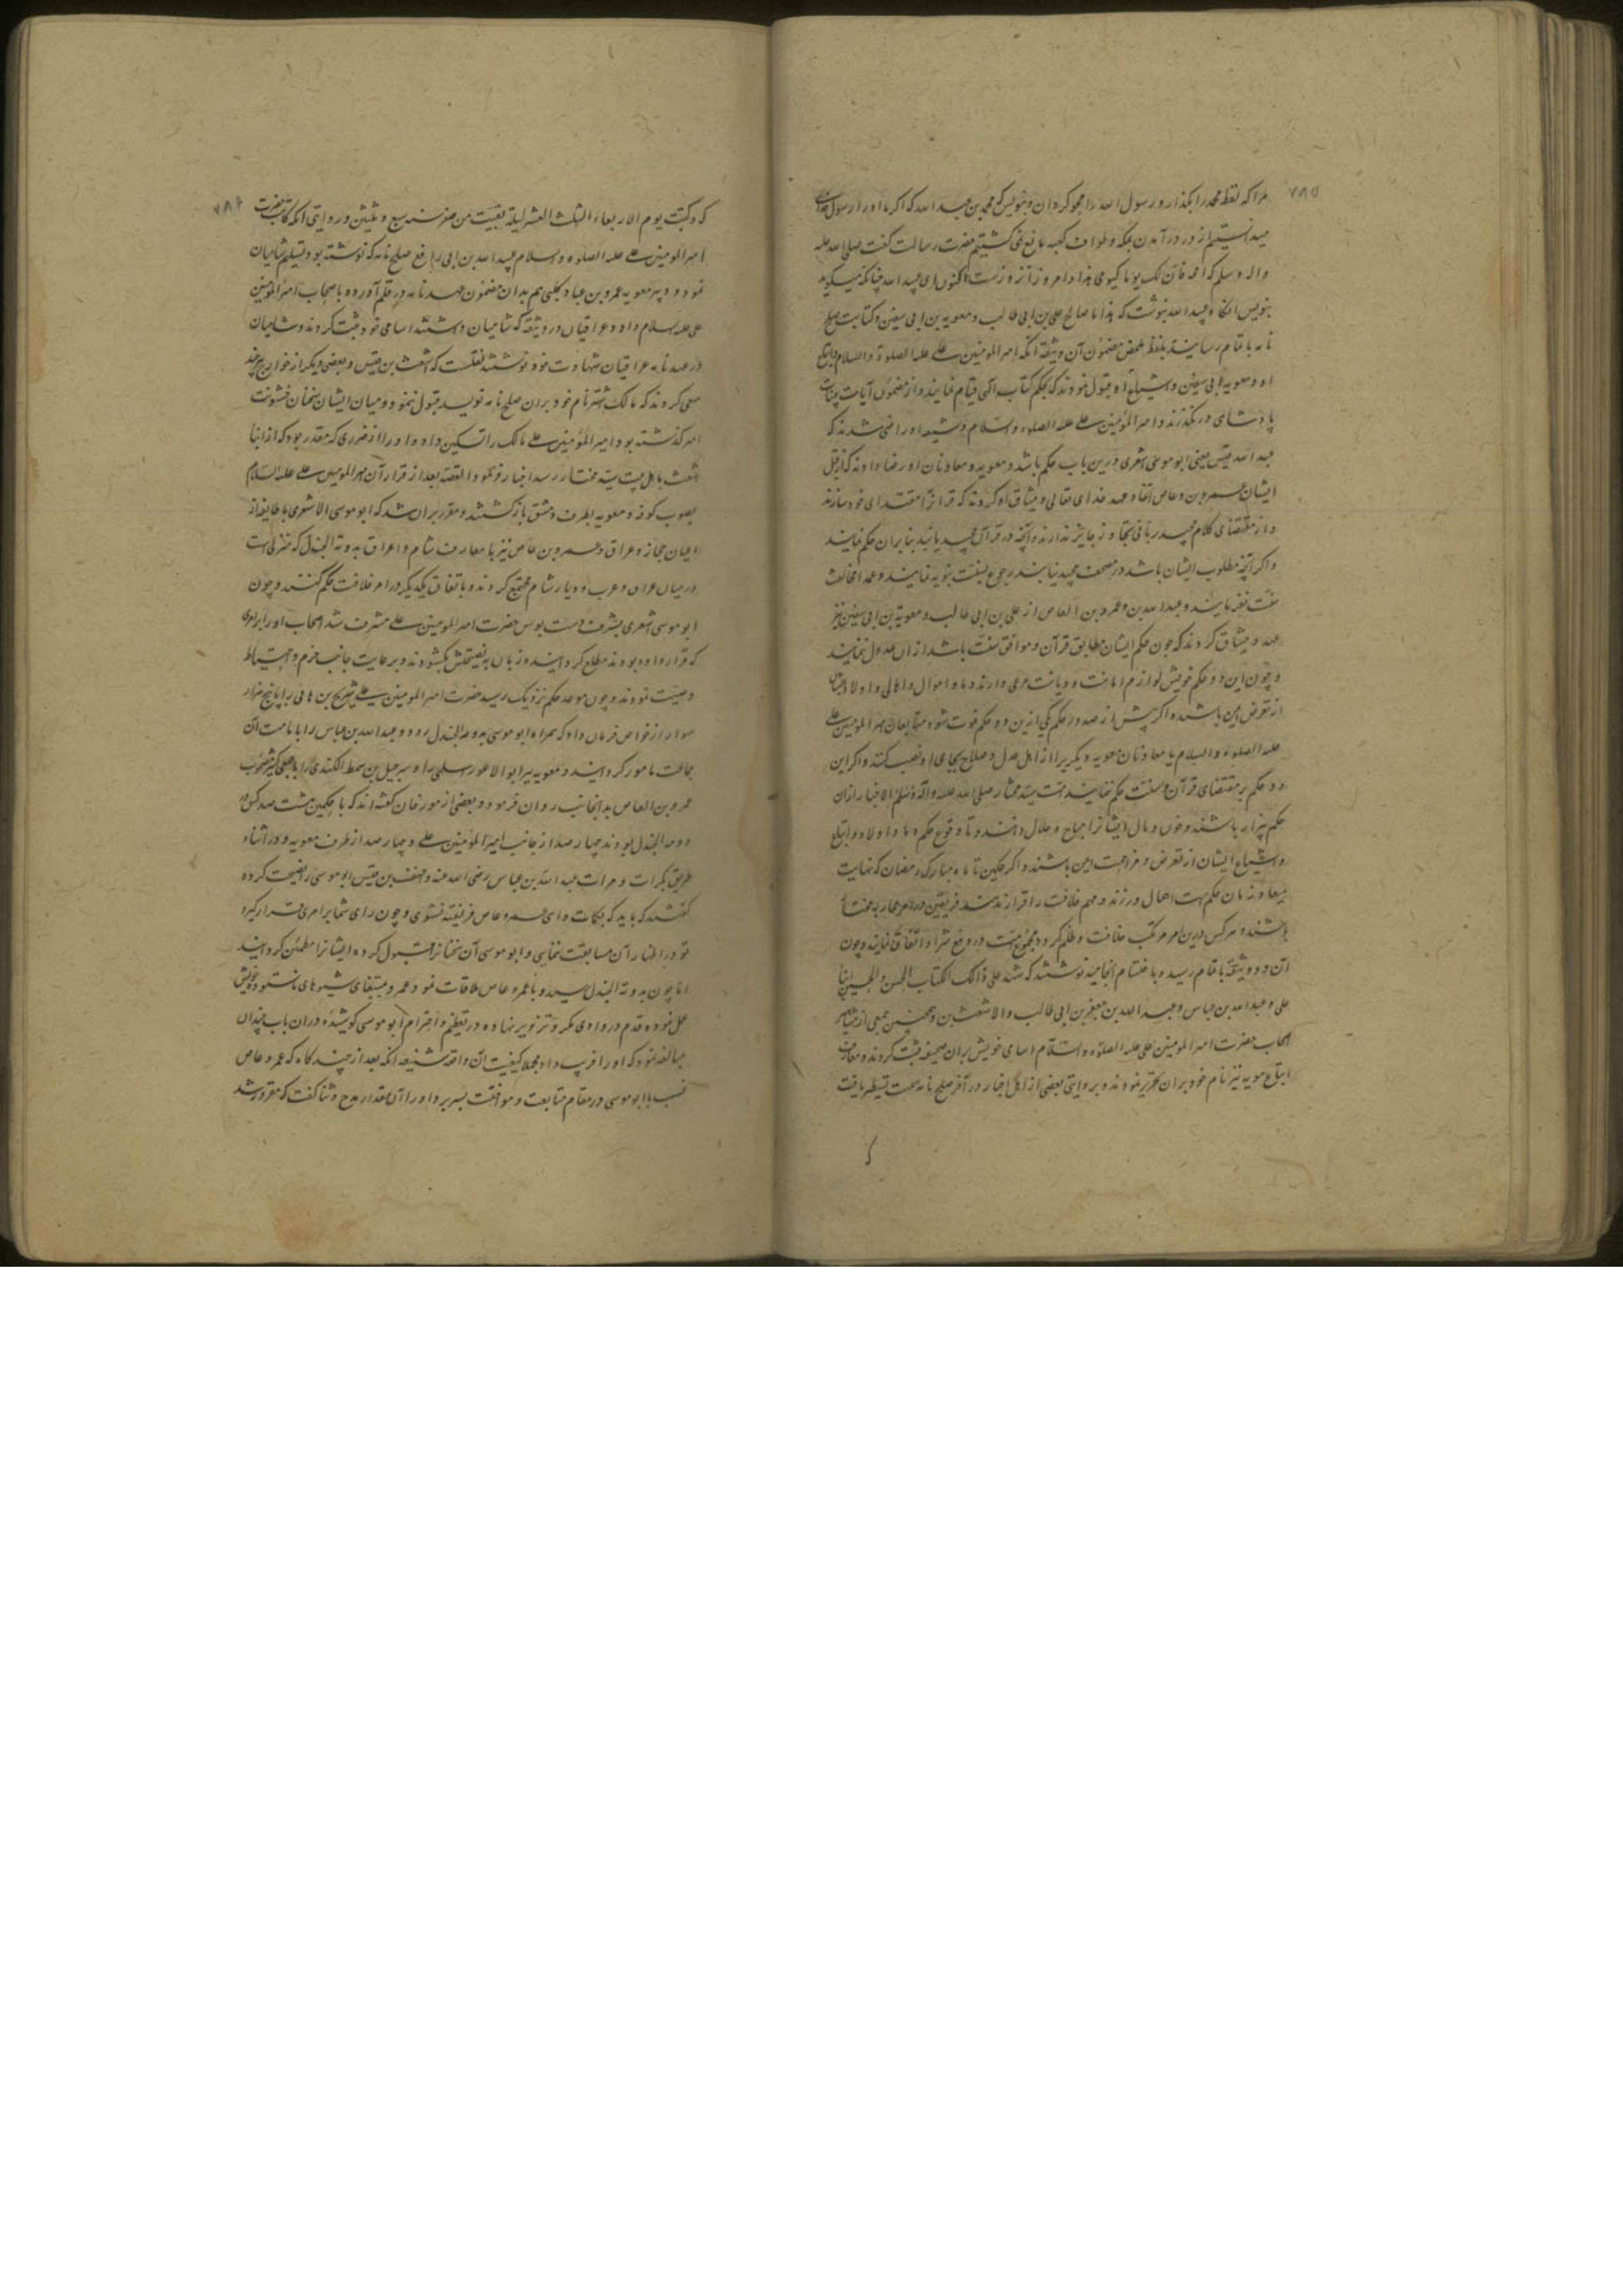 ۷۸۵
مرا که لفظ محمد را بگذار و رسول الله را محو گردان و بنویس که محمد بن عبد الله که اگر ما او را رسول خدای
میدانستیم از در درآمدن مکه و طواف کعبه مانع نمی گشتیم حضرت رسالت گفت صلی الله علیه
واله وسلم که فان لک یوما کیومی هذا و امروز آنروزست اکنون ای عبید الله چنانکه میگوید
بنویس انگاه عبید الله نبوشت که هذا ما صالح علی بن ابی طالب و معویه بن ابی سفین و کتابت صلح
نامه باتمام رسانید ملخص مضمون آن وثیقه آنکه امیر المومنین علی علیه الصلوة والسلام واتباع
او و معویه ابی سفین و اشیاع او قبول نمودند که بحکم کتاب الهی قیام نمایند و از مضمون آیات بینات
پادشاهی درنگذرند و امیر المؤمنین علی علیه الصلوه والسلام و شیعه او راضی شدند که
عبد الله قیس یعنی ابو موسی اشعری درین باب حکم باشد و معویه و معاونان او رضا دادند که از قبل
ایشان عمرو بن عاص و عهد خدای تعالی و میثاق او کردند که قرآنرا مقتدای خود سازند
و از مقتضای کلام مجید ربانی تجاوز جایز ندارند و آنچه در قرآن مجید یابند بنا بران حکم نمایند
و اگر آنچه مطلوب ایشان باشد در مصحف مجید نیابند رجوع بسنت نبویه نمایند و عمدا مخالفت
سنت نفرمایند و عبد الله بن و عمرو بن العاص از علی بن ابی طالب و معویة بن ابی سفین نیز
عهد و میثاق گردند که چون حکم ایشان مطابق قرآن و موافق سنت باشد از ان عدول ننمایند
و چون این دو حکم خویش لوازم امانت و دیانت مرعی دارند و اموال و اهالی و اولاد ایشان
از تعرض ایمن باشند و اگر پیش از صدور حکم یکی ازین دو حکم فوت شود متابعان امیر المومنین علی
علیه الصلوه والسلام یا معاونان معویه دیگریرا از اهل عدل و صلاح بجای او نصب کنند و اگر این
دو حکم بر مقتضای قرآن و سنت حکم ننمایند امت سید مختار صلی الله علیه وآله وسلم الاخیار ازان
حکم بیزار باشند و خون و مال ایشانرا مباح و حلال دانند و تا وقوع حکم و اولاد و اتباع
و اشیاع ایشان از تعرض و مزاحمت ایمن باشند و اگر حکمین تا ماه مبارک رمضان که نهایت
میعاد زمان حکم است اهمال ورزند و مهم خلافت را قرار ندهند فریقین در امر محاربه مختار
باشند و هر کس درین امر مرتکب خلافت و ظلم گردد مجموع امت در دفع شر او اتفاق نمایند و چون
آن دو وثیقه باتمام رسید و باختتام انجامید نوشتند که شهد علی ذالک الکتاب الحسن والحسین ابنا
علی و عبد الله بن عباس و عبد الله بن جعفر بن ابی طالب و الاشعث بن و همچنین جمعی از مشاهیر
اصحاب حضرت امیر المومنین علی علیه الصلوه والسلام اسامی خویش بران صحیفه ثبت کردند و معارف
اتباع معویه نیز نام خود بران تحریر نمودند و بروایتی بعضی از اهل اخبار در آخر صلح نامه سمت تسطیر یافت
۷۸۶
که وکتبت یوم الاربعاء الثلث العشر لیلة بقیت من صفر سنه سبع و ثلثین و روایتی آنکه کاتب حضرت
امیر المومنین علی علیه الصلوه والسلام عبید الله بن ابی رافع صلح نامه که نوشته بود تسلیم شامیان
نمود و دبیر معویه عمرو بن عباد کلبی هم بدان مضمون عهدنامه در قلم آورده باصحاب امیر المومنین
علی علیه السلام داد و عراقیان در وثیقه که شامیان داشتند اسامی خود ثبت کردند و شامیان
در عهدنامه عراقیان شهادت خود نوشتند نقلست که اشعث بن قیس و بعضی دیگر از خوارج هر چند
سعی کردند که مالک اشتر نام خود بران صلح نامه نویسد قبول ننمود و میان ایشان سخنان خشونت
امیر گذشته بود امیر المؤمنین علی مالک را تسکین داد و او را از ضرری که مقدر بود که از ابنا
اشعث باهل بیت سید مختار رسد اخبار فرمود القصه بعد از قرار آن امیر المومنین علی علیه السلام
بصوب کوفه و معویه بطرف دمشق بازگشتند و مقرر بران شد که ابو موسی الاشعری با طایفه از
اعیان حجاز و عراق و عمرو بن عاص نیز با معارف شام و اعراق بدومة الجندل که منزلیست
در میان عراق و عرب و دیار شام مجتمع گردند و باتفاق یکدیگر در امر خلافت حکم کنند و چون
ابو موسی اشعری بشرف دست بوس حضرت امیر المومنین علی مشرف شد اصحاب او را بر امری
که قرار داده بودند مطلع گردانیدند و زبان به نصیحتش بگشودند و برعایت جانب حزم و احتیاط
وصیت نمودند و چون موعد حکم نزدیک رسید حضرت امیر المومنین علی شریح بن هانی را با پنج هزار
سوار از خواص فرمان داد که همراه ابو موسی بدومة الجندل رود و عبد الله بن عباس را بامامت آن
جماعت مامور گردانید و معویه نیز ابو الاعور سلمی را و شرحبیل بن سمط الکندی را با جمعی کثیر مصحوب
عمرو بن العاص بدانجانب روان فرمود و بعضی از مورخان گفته اند که با حکمین هشت صد کس در
دومة الجندل بودند چهار صد از جانب امیر المؤمنین علی و چهار صد از طرف معویه و در اثناء
طریق بکرات و مرات عبد الله بن عباس رضی الله عنه و احنف بن قیس ابو موسی را نصیحت کرده
گفتند که باید که بکلمات واهی عمرو عاص فریفته نشوی و چون رای شما بر امری قرار گیرد
تو در اظهار آن مسابقت ننمایی و ابو موسی آن سخنانرا قبول کرده ایشانرا مطمئن گردانید
اما چون بدومة الجندل رسید و با عمرو عاص ملاقات نمود عمرو بمقتضای شیوهای ناستوده خویش
عمل نموده قدم در وادی مکر و تزویر نهاده در تعظیم و احترام ابو موسی کوشیده دران باب چندان
مبالغه نمود که او را فریب داد مجملا کیفیت آن واقعه شنیعه آنکه بعد از چند گاه که عمرو عاص
با ابو موسی در مقام متابعت و موافقت بسر برد او را آن مقدار مدح و ثنا گفت که مغرور شد